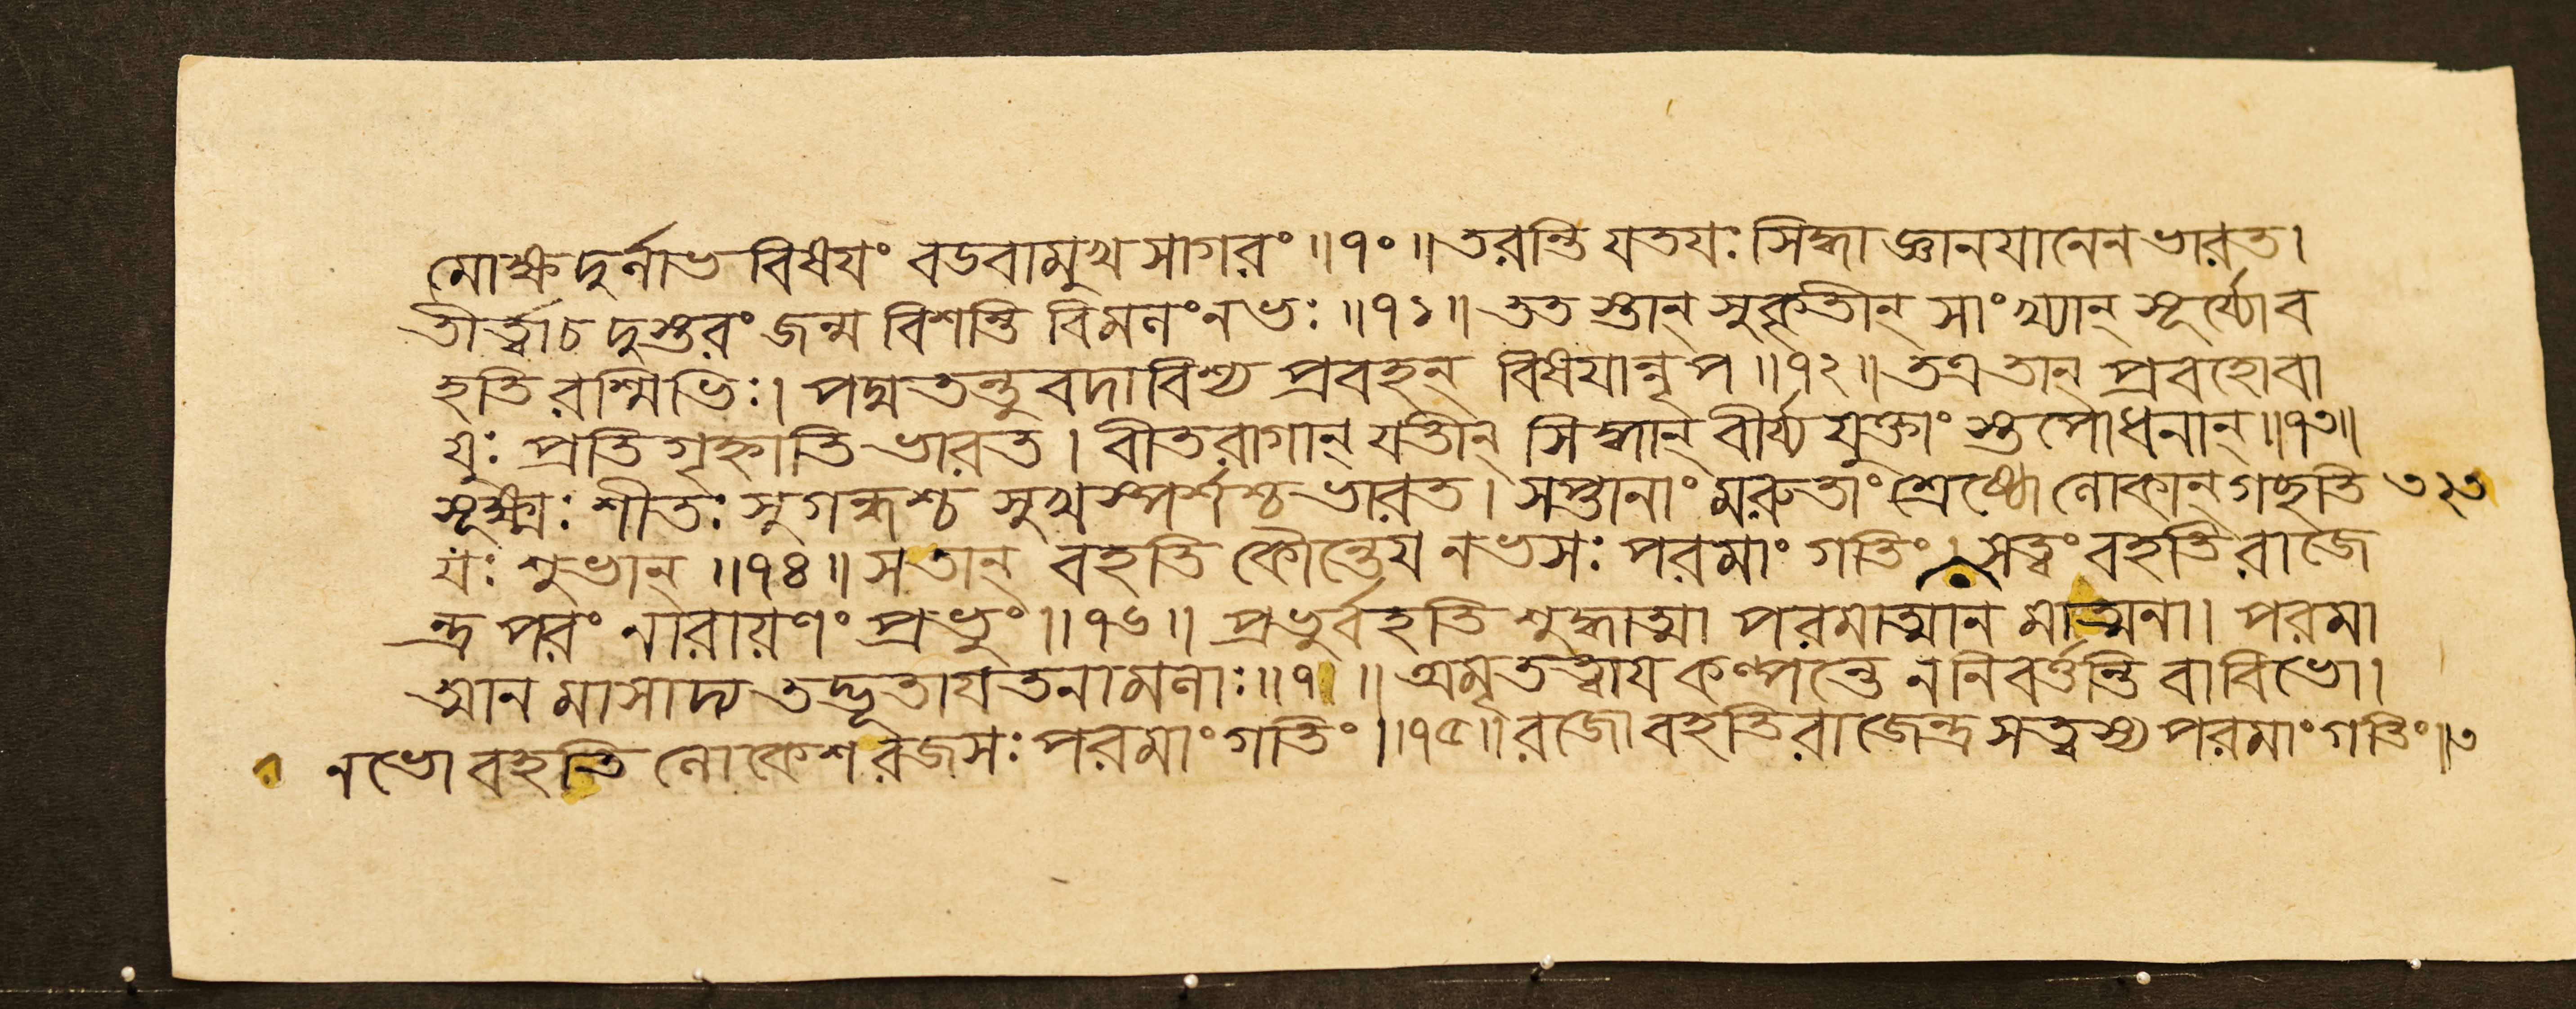 মোক্ষদুর্লাভবিষয়ং বডবামুখসাগরং॥৭০॥তরন্তি যতয়ঃ সিদ্ধা জ্ঞানযানেন ভারত।
তীর্ত্ত্বা চ দুস্তরং জন্ম বিশন্তি বিমলং নভঃ॥৭১॥ ততস্তান্ সুকৃতীন্ সাংখ্যান্ সূর্য্যো ব
হতি রশ্মিভিঃ। পদ্মতন্তুবদাবিশ্য প্রবহন্ বিষয়ান্নৃপ॥৭২॥ তত্র তান্ প্রবহো বা
য়ুঃ প্রতিগৃহ্ণাতি ভারত। বীতরাগান্ যতীন্ সিদ্ধান্ বীর্য্যযুক্তাংস্তপোধনান্॥৭৩॥
সূক্ষ্মঃ শীতঃ সুগন্ধশ্চ সুখস্পর্শশ্চ ভারত। সপ্তানাং মরুতাং শ্রেষ্ঠো লোকান্ গচ্ছতি ৩২৩
যঃ শুভান্॥৭৪॥ স তান্ বহতি কৌন্তেয় নভসঃ পরমাং গতিং। সত্ত্বং বহতি রাজে
ন্দ্র পরং নারায়ণং প্রভুং॥৭৬॥ প্রভুর্বহতি শুদ্ধাত্মা পরমাত্মানমাত্মনা। পরমা
ত্মানমাসাদ্য তদ্ভূতায়তনামলাঃ॥৭ ॥ অমৃতত্বায় কল্পন্তে ন নিবর্ত্তন্তি বা বিভো।
নভো বহতি লোকেশ রজসঃ পরমাং গতিং॥৭৫॥ রজো বহতি রাজেন্দ্র সত্ত্বস্য পরমাং গতিং॥৩